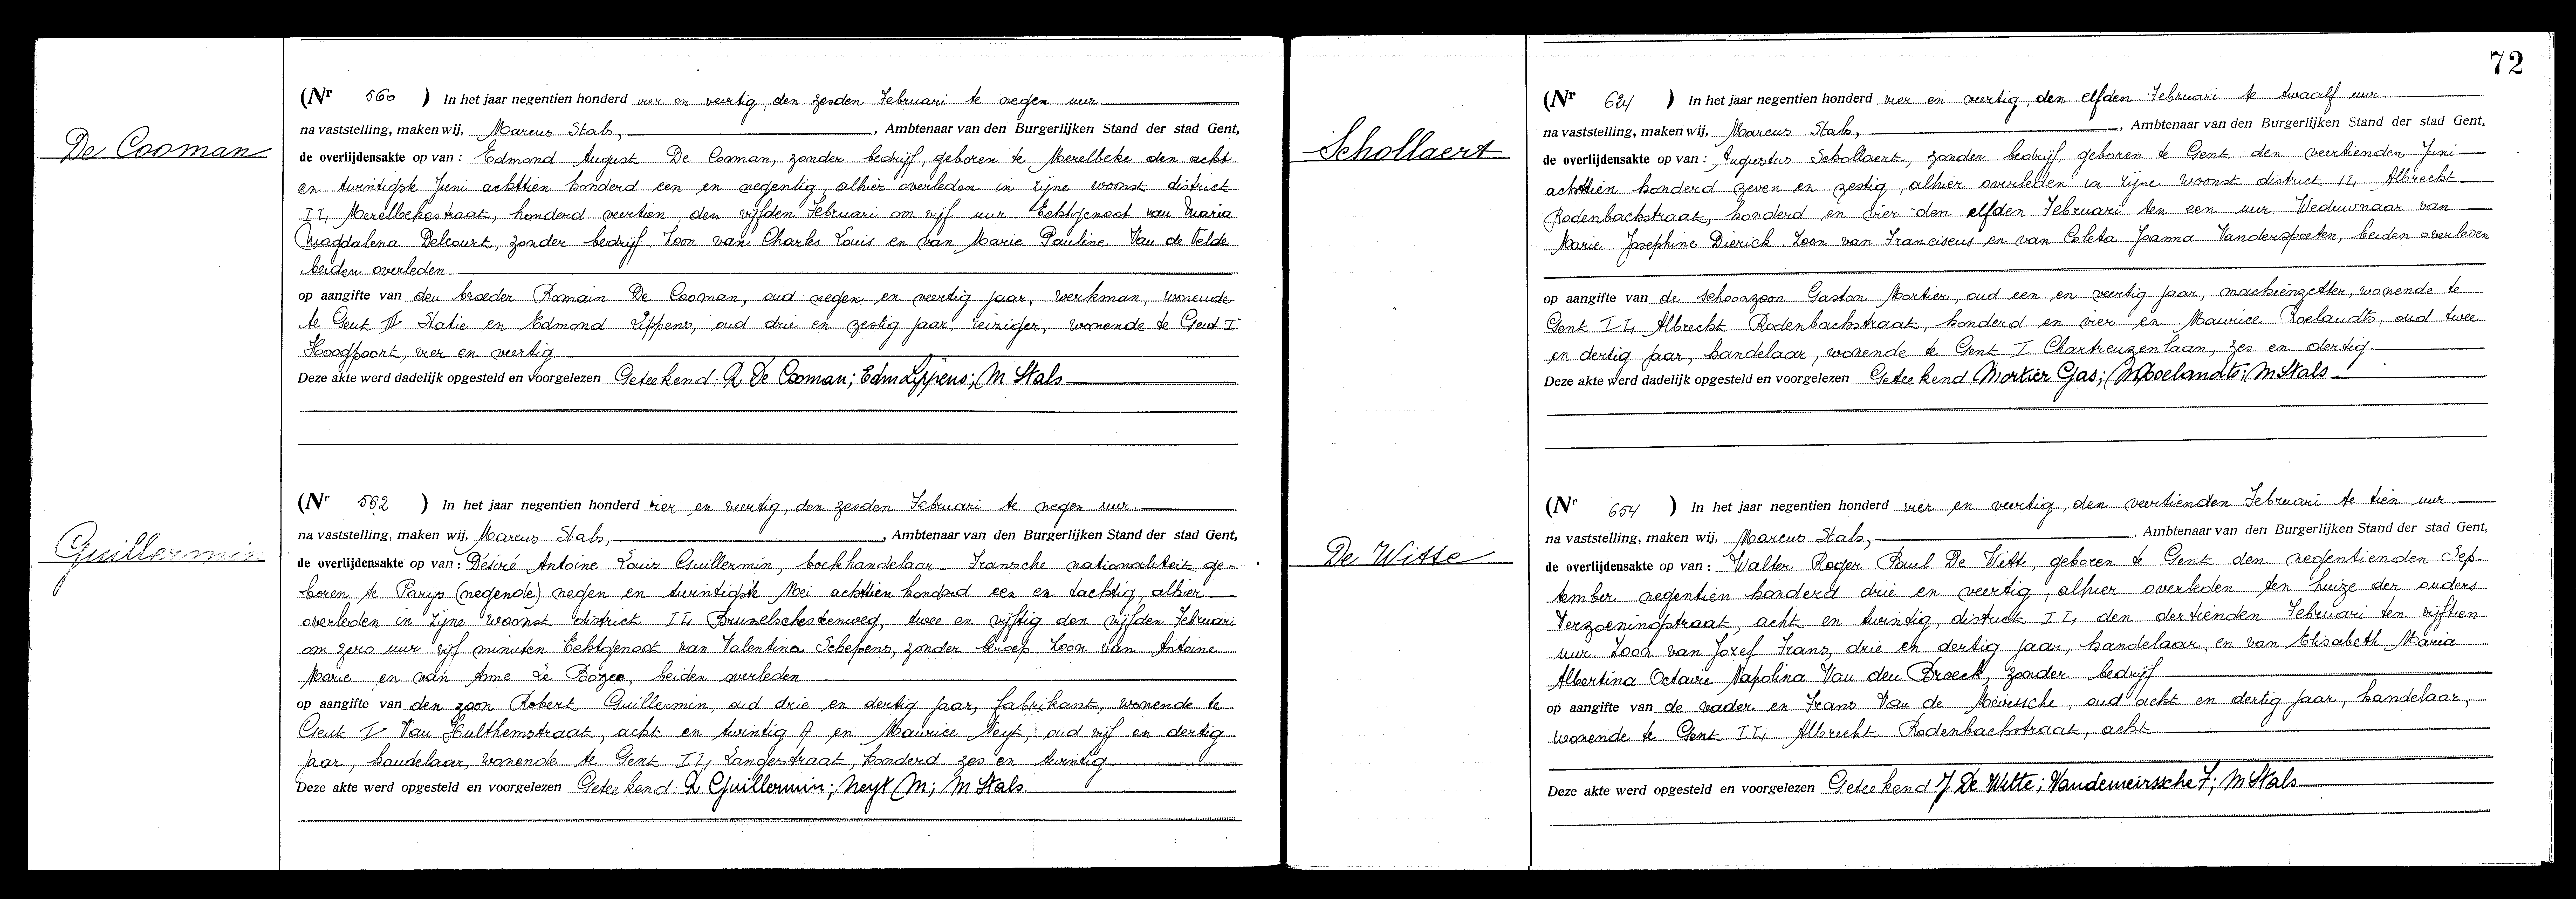 De Cooman
(Nr 560 ) In het jaar negentien honderd vier en veertig, den zesden Februari te negen uur
na vaststelling, maken wij, Marcus Stals, , Ambtenaar van den Burgerlijken Stand der stad Gent,
de overlijdensakte op van : Edmond August De Cooman, zonder bedrijf, geboren te Merelbeke den acht
en twintigste Juni achttien honderd een en negentig, alhier overleden in zijne woonst district
II, Merelbekestraat, honderd veertien, den vijfden Februari om vijf uur Echtgenoot van Maria
Magdalena Delcourt, zonder bedrijf. Zoon van Charles Louis en van Marie Pauline Van de Velde
beiden overleden
op aangifte van den broeder Romain De Cooman, oud negen en veertig jaar, werkman, wonende
te Gent II Statie en Edmond Lippens, oud drie en zestig jaar, reiziger, wonende te Gent I
Hoogpoort, vier en veertig
Deze akte werd dadelijk opgesteld en voorgelezen Geteekend: R De Cooman; Edm Lippens; M Stals
Guillermin
(Nr 562 ) In het jaar negentien honderd vier en veertig, den zesden Februari te negen uur.
na vaststelling, maken wij, Marcus Stals, , Ambtenaar van den Burgerlijken Stand der stad Gent,
de overlijdensakte op van : Désiré Antoine Louis Guillermin, boekhandelaar Fransche nationaliteit, ge-
boren te Parijs (negende) negen en twintigste Mei achttien honderd een en tachtig, alhier
overleden in zijne woonst district II, Brusselschesteenweg, twee en vijftig den vijfden Februari
om zero uur vijf minuten Echtgenoot van Valentina Schepens, zonder beroep. Zoon van Antoine
Marie en van Anne Le Bozec, beiden overleden
op aangifte van den zoon Robert Guillermin, oud drie en dertig jaar, fabrikant, wonende te
Gent I Van Hulthemstraat, acht en twintig A en Maurice Neyt, oud vijf en dertig
jaar, handelaar, wonende te Gent II, Langestraat, honderd zes en twintig
Deze akte werd opgesteld en voorgelezen Geteekend: R Guillermin; Neyt M; M Stals
72
Schollaert
(Nr 624 ) In het jaar negentien honderd vier en veertig, den elfden Februari te twaalf uur
na vaststelling, maken wij, Marcus Stals, , Ambtenaar van den Burgerlijken Stand der stad Gent,
de overlijdensakte op van : Augustus Schollaert, zonder bedrijf, geboren te Gent den veertienden Juni
achttien honderd zeven en zestig, alhier overleden in zijne woonst district II, Albrecht
Rodenbachstraat, honderd en vier den elfden Februari ten een uur. Weduwnaar van
Marie Josephine Dierick Zoon van Franciscus en van Coleta Joanna Vanderspeeten, beiden overleden
op aangifte van de schoonzoon Gaston Mortier, oud een en veertig jaar, machienzetter, wonende te
Gent II, Albrecht Rodenbachstraat, honderd en vier en Maurice Roelandts, oud twee
en dertig jaar, handelaar, wonende te Gent I Chartreuzenlaan, zes en dertig
Deze akte werd dadelijk opgesteld en voorgelezen Geteekend Mortier Gas; M Roelandts; M Stals
De Witte
(Nr 654 ) In het jaar negentien honderd vier en veertig, den veertienden Februari te tien uur
na vaststelling, maken wij, Marcus Stals, , Ambtenaar van den Burgerlijken Stand der stad Gent,
de overlijdensakte op van : Walter Roger Paul De Witte, geboren te Gent den negentienden Sep-
tember negentien honderd drie en veertig, alhier overleden ten huize der ouders
Verzoeningstraat, acht en twintig, district II, den dertienden Februari ten vijftien
uur. Zoon van Jozef Frans, drie en dertig jaar, handelaar, en van Elisabeth Maria
Albertina Octavie Napolina Van den Broeck, zonder bedrijf
op aangifte van de vader en Frans Van de Meirssche, oud acht en dertig jaar, handelaar,
wonende te Gent II, Albrecht Rodenbachstraat, acht
Deze akte werd opgesteld en voorgelezen Geteekend J De Witte; Vandemeirssche F; M Stals